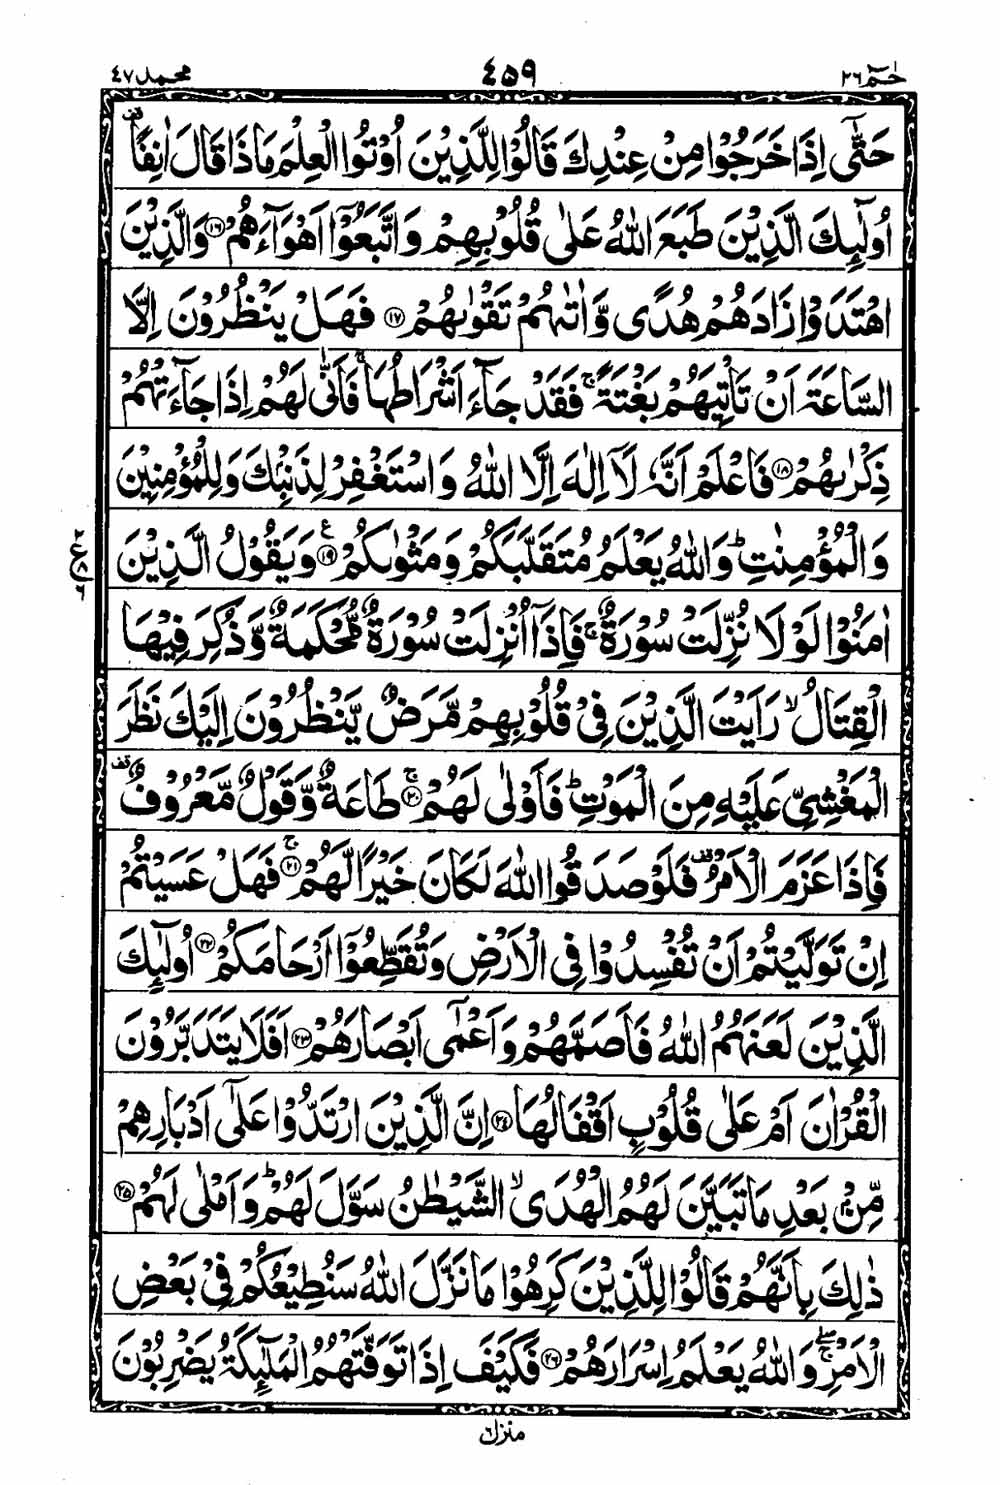 حٰمٓ ٢٦
٤٥٩
محمد ٤٧
حَتّٰۤى اِذَا خَرَجُوْا مِنْ عِنْدِكَ قَالُوْا لِلَّذِيْنَ اُوْتُوا الْعِلْمَ مَاذَا قَالَ اٰنِفًا ۫
اُولٰٓئِكَ الَّذِيْنَ طَبَعَ اللّٰهُ عَلٰى قُلُوْبِهِمْ وَاتَّبَعُوْۤا اَهْوَآءَهُمْ ﴿١٦﴾ وَالَّذِيْنَ
اهْتَدَوْا زَادَهُمْ هُدًى وَّاٰتٰىهُمْ تَقْوٰىهُمْ ﴿١٧﴾ فَهَلْ يَنْظُرُوْنَ اِلَّا
السَّاعَةَ اَنْ تَاْتِيَهُمْ بَغْتَةً ۚ فَقَدْ جَآءَ اَشْرَاطُهَا ۚ فَاَنّٰى لَهُمْ اِذَا جَآءَتْهُمْ
ذِكْرٰىهُمْ ﴿١٨﴾ فَاعْلَمْ اَنَّهٗ لَاۤ اِلٰهَ اِلَّا اللّٰهُ وَاسْتَغْفِرْ لِذَنْۢبِكَ وَلِلْمُؤْمِنِيْنَ
وَالْمُؤْمِنٰتِ ؕ وَاللّٰهُ يَعْلَمُ مُتَقَلَّبَكُمْ وَمَثْوٰىكُمْ ﴿١٩﴾ ع وَيَقُوْلُ الَّذِيْنَ
اٰمَنُوْا لَوْلَا نُزِّلَتْ سُوْرَةٌ ۚ فَاِذَاۤ اُنْزِلَتْ سُوْرَةٌ مُّحْكَمَةٌ وَّذُكِرَ فِيْهَا
الْقِتَالُ ۙ رَاَيْتَ الَّذِيْنَ فِيْ قُلُوْبِهِمْ مَّرَضٌ يَّنْظُرُوْنَ اِلَيْكَ نَظَرَ
الْمَغْشِيِّ عَلَيْهِ مِنَ الْمَوْتِ ؕ فَاَوْلٰى لَهُمْ ﴿٢٠﴾ ۚ طَاعَةٌ وَّقَوْلٌ مَّعْرُوْفٌ ۫
فَاِذَا عَزَمَ الْاَمْرُ ۫ فَلَوْ صَدَقُوا اللّٰهَ لَكَانَ خَيْرًا لَّهُمْ ﴿٢١﴾ ۚ فَهَلْ عَسَيْتُمْ
اِنْ تَوَلَّيْتُمْ اَنْ تُفْسِدُوْا فِي الْاَرْضِ وَتُقَطِّعُوْۤا اَرْحَامَكُمْ ﴿٢٢﴾ اُولٰٓئِكَ
الَّذِيْنَ لَعَنَهُمُ اللّٰهُ فَاَصَمَّهُمْ وَاَعْمٰۤى اَبْصَارَهُمْ ﴿٢٣﴾ اَفَلَا يَتَدَبَّرُوْنَ
الْقُرْاٰنَ اَمْ عَلٰى قُلُوْبٍ اَقْفَالُهَا ﴿٢٤﴾ اِنَّ الَّذِيْنَ ارْتَدُّوْا عَلٰۤى اَدْبَارِهِمْ
مِّنْۢ بَعْدِ مَا تَبَيَّنَ لَهُمُ الْهُدَى ۙ الشَّيْطٰنُ سَوَّلَ لَهُمْ ؕ وَاَمْلٰى لَهُمْ ﴿٢٥﴾
ذٰلِكَ بِاَنَّهُمْ قَالُوْا لِلَّذِيْنَ كَرِهُوْا مَا نَزَّلَ اللّٰهُ سَنُطِيْعُكُمْ فِيْ بَعْضِ
الْاَمْرِ ۚۖ وَاللّٰهُ يَعْلَمُ اِسْرَارَهُمْ ﴿٢٦﴾ فَكَيْفَ اِذَا تَوَفَّتْهُمُ الْمَلٰٓئِكَةُ يَضْرِبُوْنَ
٢
ع ٨
٦
منزل ٦